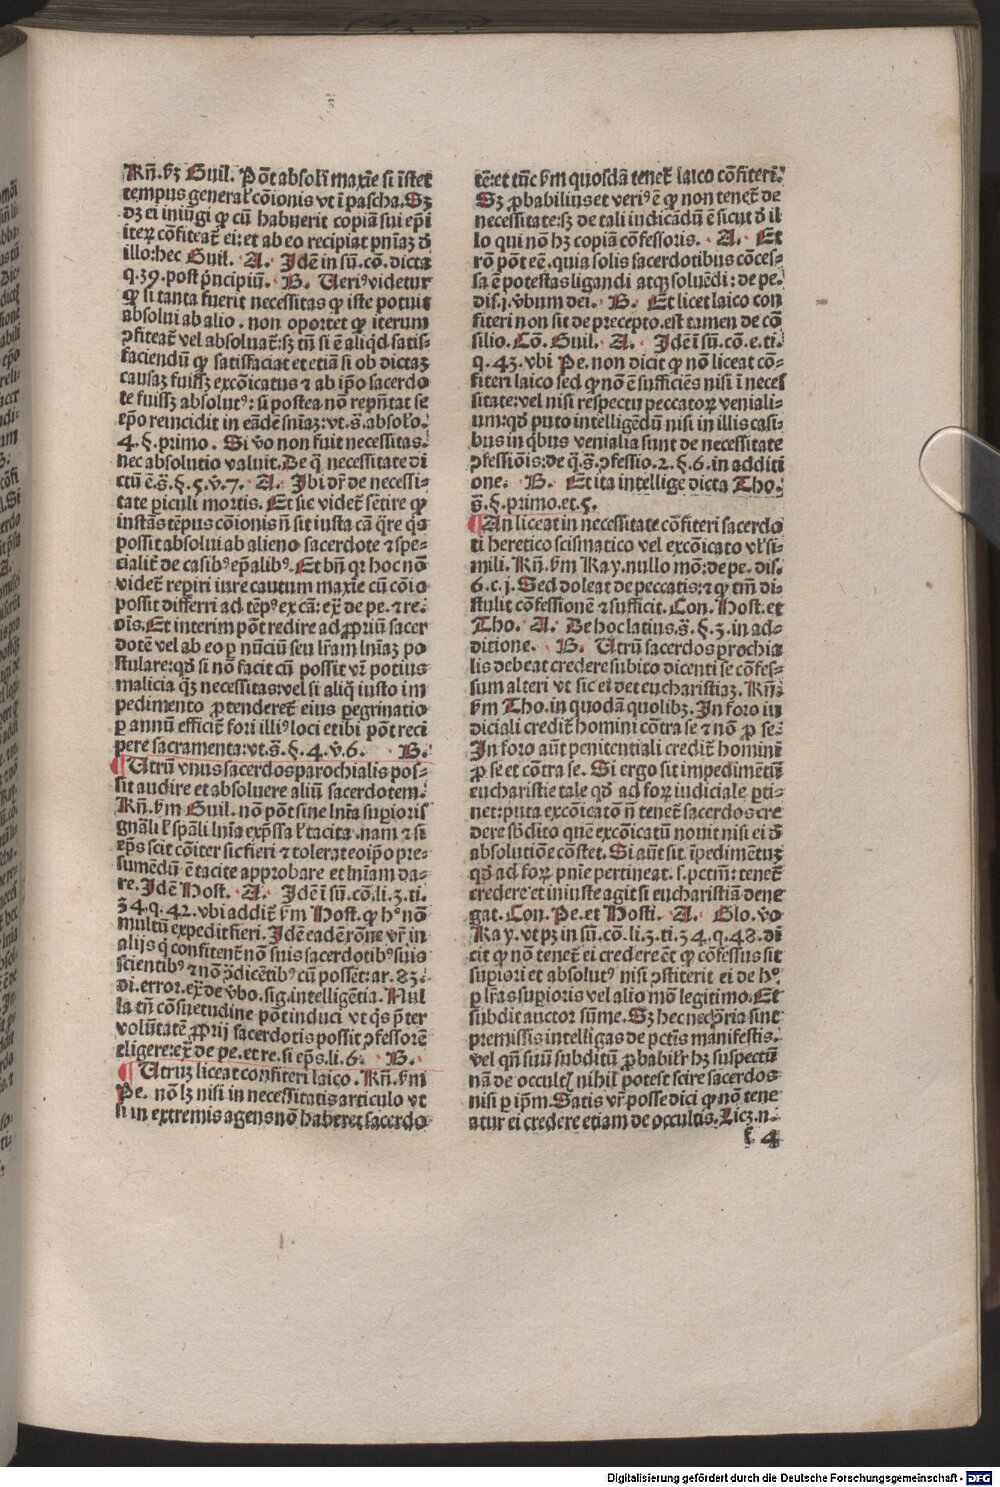 Rn̄. ẜm Guil. Pōt absolui maxīe si īstet
tempus general' cōionis vt ī pascha. Sꝫ
dꝫ ei iniūgi ꝙ cū habuerit copiā sui epī
iterꝝ cōfiteat̃ ei: et ab eo recipiat pn̄iaꝫ ꝺ
illo: hec Guil. A. Idē in sū. cō. dicta
q. 39. post pͥncipiū. B. Ueriꝰ videtur
ꝙ si tanta fuerit necessitas ꝙ iste potuit
absolui ab alio. non oportet ꝙ iterum
ꝯfiteat̃ vel absoluat̃: sꝫ tn̄ si ē aliqd satis-
faciendū ꝙ satisfaciat et etiā si ob dictaꝫ
causaꝫ fuissꝫ excōicatus ⁊ ab ip̄o sacerdo
te fuissꝫ absolutꝰ: si postea nō repn̄tat se
ep̄o reincidit in eādē sn̄iaꝫ: vt. s̄. absol'o.
4. §. primo. Si v̄o non fuit necessitas.
nec absolutio valuit. De q̄ necessitate di
ctū ē. s̄. §. 5. v. 7. A. Ibi dr̄ de necessi-
tate piculi mortis. Et sic videt̃ sētire ꝙ
instās tēpus cōionis n̄ sit iusta cā q̄re q̊s
possit absolui ab alieno sacerdote ⁊ spe-
cialit̃ de casibꝰ ep̄alibꝰ. Et bn̄ qꝛ hoc nō
videt̃ repiri iure cautum maxīe cū cōio
possit differri ad tēpꝰ ex cā: ex̄ de pe. ⁊ re.
oīs. Et interim pōt redire ad ꝓpriū sacer
dotē vel ab eo ꝑ nūciū seu lr̄am ln̄iaꝫ po
stulare: qꝺ si nō facit cū possit vr̄ potius
malicia q̄ꝫ necessitas: vel si aliq̄ iusto im
pedimento ꝓtenderet̃ eius ꝑegrinatio
ꝑ annū efficit̃ fori illiꝰ loci et ibi pōt reci
pere sacramenta: vt. s̄. §. 4. v. 6. B.
¶ Utrū vnus sacerdos parochialis pos-
sit audire et absoluere aliū sacerdotem.
Rn̄. ẜm Guil. nō pōt sine ln̄ia suꝑioris
gnāli l' spāli ln̄ia exp̄ssa l' tacita. nam ⁊ si
ep̄s scit cōiter sic fieri ⁊ tolerat eo ip̄o pre-
sumēdū ē tacite approbare et ln̄iam da-
re. Idē Host. A. Idē ī sū. cō. li. 3. ti.
34. q. 42. vbi addit̃ ẜm Host. ꝙ hͦ nō
multū expedit fieri. Idē eādē rōne vr̄ in
alijs q̄ confitent̃ nō suis sacerdotibꝰ suis
scientibꝰ ⁊ nō ꝯdicētibꝰ cū possēt: ar. 83.
di. error. ex̄ de v̄bo. sig. intelligētia. Nul
la tn̄ cōsuetudine pōt induci vt q̊s p̄ter
volūtatē ꝓprij sacerdotis possit ꝯfessorē
eligere: ex̄ de pe. et re. si ep̄s. li. 6. B.
¶ Utruꝫ liceat confiteri laico. Rn̄. ẜm
Pe. nō lꝫ nisi in necessitatis articulo vt
si in extremis agens nō haberet sacerdo
tē: et tūc ẜm quosdā tenet̃ laico cōfiteri.
Sꝫ ꝓbabilius et veriꝰ ē ꝙ non tenet̃ de
necessitate: sꝫ de tali iudicādū ē sicut ꝺ il
lo qui nō hꝫ copiā cōfessoris. A. Et
rō pōt eē. quia solis sacerdotibus cōces-
sa ē potestas ligandi atqꝫ soluēdi: de pe.
dis. j. v̄bum dei. B. Et licet laico con
fiteri non sit de precepto. est tamen de cō
silio. Cō. Guil. A. Idē ī sū. cō. e. ti.
q. 43. vbi Pe. non dicit ꝙ nō liceat cō-
fiteri laico sed ꝙ nō ē sufficiēs nisi ī neces
sitate: vel nisi respectu peccatoꝝ veniali-
um: qꝺ puto intelligēdū nisi in illis casi-
bus in q̄bus venialia sunt de necessitate
ꝯfessiōis: de q̄. s̄. ꝯfessio. 2. §. 6. in additi
one. B. Et ita intellige dicta Tho.
s̄. §. primo. et. 5.
¶ An liceat in necessitate cōfiteri sacerdo
ti heretico scismatico vel excōicato vl' si-
mili. Rn̄. ẜm Ray. nullo mō: de pe. dis.
6. c. j. Sed doleat de peccatis: ⁊ ꝙ tm̄ di-
stulit cōfessionē ⁊ sufficit. Con. Host. et
Tho. A. De hoc latius. s̄. §. 3. in ad-
ditione. B. Utrū sacerdos ꝑochia
lis debeat credere subito dicenti se cōfes-
sum alteri vt sic ei det eucharistiaꝫ. Rn̄.
ẜm Tho. in quodā quolibꝫ. In foro iu
diciali credit̃ homini cōtra se ⁊ nō ꝓ se.
In foro aūt penitentiali credit̃ homini
ꝓ se et cōtra se. Si ergo sit impedimētū
eucharistie tale qꝺ ad foꝝ iudiciale ꝑti-
net: puta excōicatō n̄ tenet̃ sacerdos cre
dere sb̄dito quē excōicatū nouit nisi ei ꝺ
absolutiōe cōstet. Si aūt sit īpedimētuꝫ
qꝺ ad foꝝ pn̄ie pertineat. s. pctm̄: tenet̃
credere et iniuste agit si eucharistiā dene
gat. Con. Pe. et Hosti. A. Glo. v̄o
Ray. vt pꝫ in sū. cō. li. 3. ti. 34. q. 48. di
cit ꝙ nō tenet̃ ei credere ēt ꝙ cōfessus sit
suꝑiori et absolutꝰ nisi ꝯstiterit ei de hͦ.
ꝑ lr̄as suꝑioris vel alio mō legitimo. Et
subdit auctor sūme. Sꝫ hec ne ꝯͣria sint
premissis intelligas de pctīs manifestis.
vel qn̄ suū subditū ꝓbabilr̄ hꝫ suspectū
nā de occultꝭ nihil potest scire sacerdos
nisi ꝑ ip̄m. Satis vr̄ posse dici ꝙ nō tene
atur ei credere etiam de occultis. Licꝫ. n.
l 4
Digitalisierung gefördert durch die Deutsche Forschungsgemeinschaft - DFG